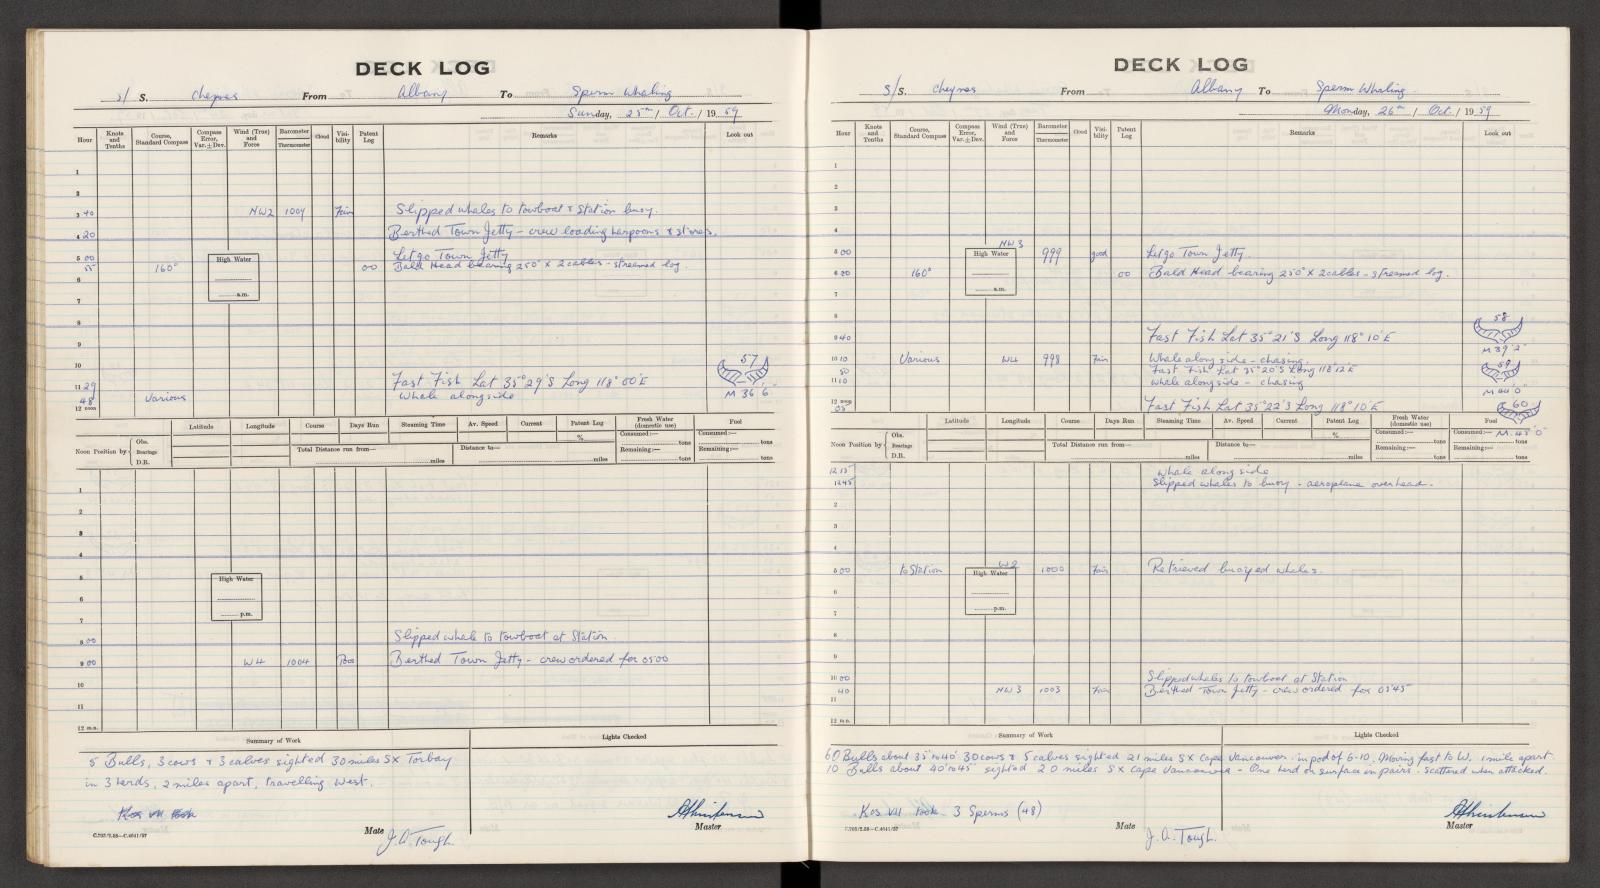 DECK LOG
s/ S. Cheynes From Albany To Sperm Whaling
Sunday, 25th / Oct. / 1959
Hour Knots and Tenths Course, Standard Compass Compass Error, Var. ± Dev. Wind (True) and Force Barometer Thermometer Cloud Visibility Patent Log Remarks Look out
1
2
3 40 NW2 1004 Fair Slipped whales to towboat & Station buoy.
4 20 Berthed Town Jetty - crew loading harpoons & stores.
5 00 Let go Town Jetty
55 160° 00 Bald Head bearing 250° x 2 cables - streamed log.
High Water
a.m.
6
7
8
9
10 57
11 29 Fast Fish Lat 35° 29'S Long 118° 00'E
48 Various Whale alongside M 36' 6"
12 noon
Noon Position by Obs. Bearings D.R. Latitude Longitude Course Days Run Steaming Time Av. Speed Current Patent Log % Fresh Water (domestic use) Fuel
Consumed:— tons Consumed:— tons
Total Distance run from— miles Distance to— miles Remaining:— tons Remaining:— tons
1
2
3
4
5
High Water
p.m.
6
7
8 00 Slipped whale to towboat at Station.
9 00 W4 1004 Berthed Town Jetty - crew ordered for 0500
10
11
12 m.n.
Summary of Work Lights Checked
5 Bulls, 3 cows & 3 calves sighted 30 miles S x Torbay
in 3 herds, 2 miles apart, travelling West.
Kos VII took
C.703/7.58—C.4041/57
Mate J.A. Tough.
Master
DECK LOG
S/S. Cheynes From Albany To Sperm Whaling.
Monday, 26th / Oct. / 1959
Hour Knots and Tenths Course, Standard Compass Compass Error, Var. ± Dev. Wind (True) and Force Barometer Thermometer Cloud Visibility Patent Log Remarks Look out
1
2
3
4
5 00 NW3 999 good Let go Town Jetty.
6 20 160° 00 Bald Head bearing 250° x 2 cables - streamed log.
High Water
a.m.
7
8 58
9 40 Fast Fish Lat 35° 21'S Long 118° 10'E
M 39' 2"
10 10 Various W4 998 Fair Whale alongside - chasing.
50 Fast Fish Lat 35° 20'S Long 118° 12'E 59
11 10 Whale alongside - chasing
M 44' 0"
12 noon
05 Fast Fish Lat 35° 22'S Long 118° 10'E 60
M. 43' 0"
Noon Position by Obs. Bearings D.R. Latitude Longitude Course Days Run Steaming Time Av. Speed Current Patent Log % Fresh Water (domestic use) Fuel
Consumed:— tons Consumed:— tons
Total Distance run from— miles Distance to— miles Remaining:— tons Remaining:— tons
12 15 Whale alongside
1245 Slipped whales to buoy - aeroplane overhead.
2
3
4
5 00 to Station W2 1000 Fair Retrieved buoyed whales.
High Water
p.m.
6
7
8
9
10 00 Slipped whales to towboat at Station
40 NW3 1003 Fair Berthed Town Jetty - crew ordered for 0345
11
12 m.n.
Summary of Work Lights Checked
60 Bulls about 35' to 40' 30 cows & 5 calves sighted 21 miles S x Cape Vancouver in pod of 6-10. Moving fast to W. 1 mile apart
10 Bulls about 40' to 45' sighted 20 miles S x Cape Vancouver - One herd on surface in pairs. Scattered when attacked.
Kos VII took 3 Sperms (48)
C.703/7.58—C.4041/57
Mate J.A. Tough.
Master